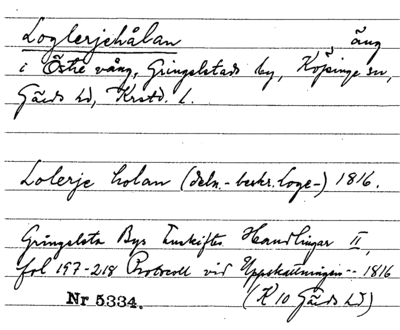 Loglerjehålan äng
i Östre vång, Gringelstads by, Köpinge sn,
Gärds hd, Krstd. l.
Lolerje holan (deln.-beskr. Loge-) 1816.
Gringelsta Bys Enskifte Handlingar II,
fol 197-218 Protocoll vid Uppskattningen -- 1816
Nr 5334. (K 10 Gärds hd)